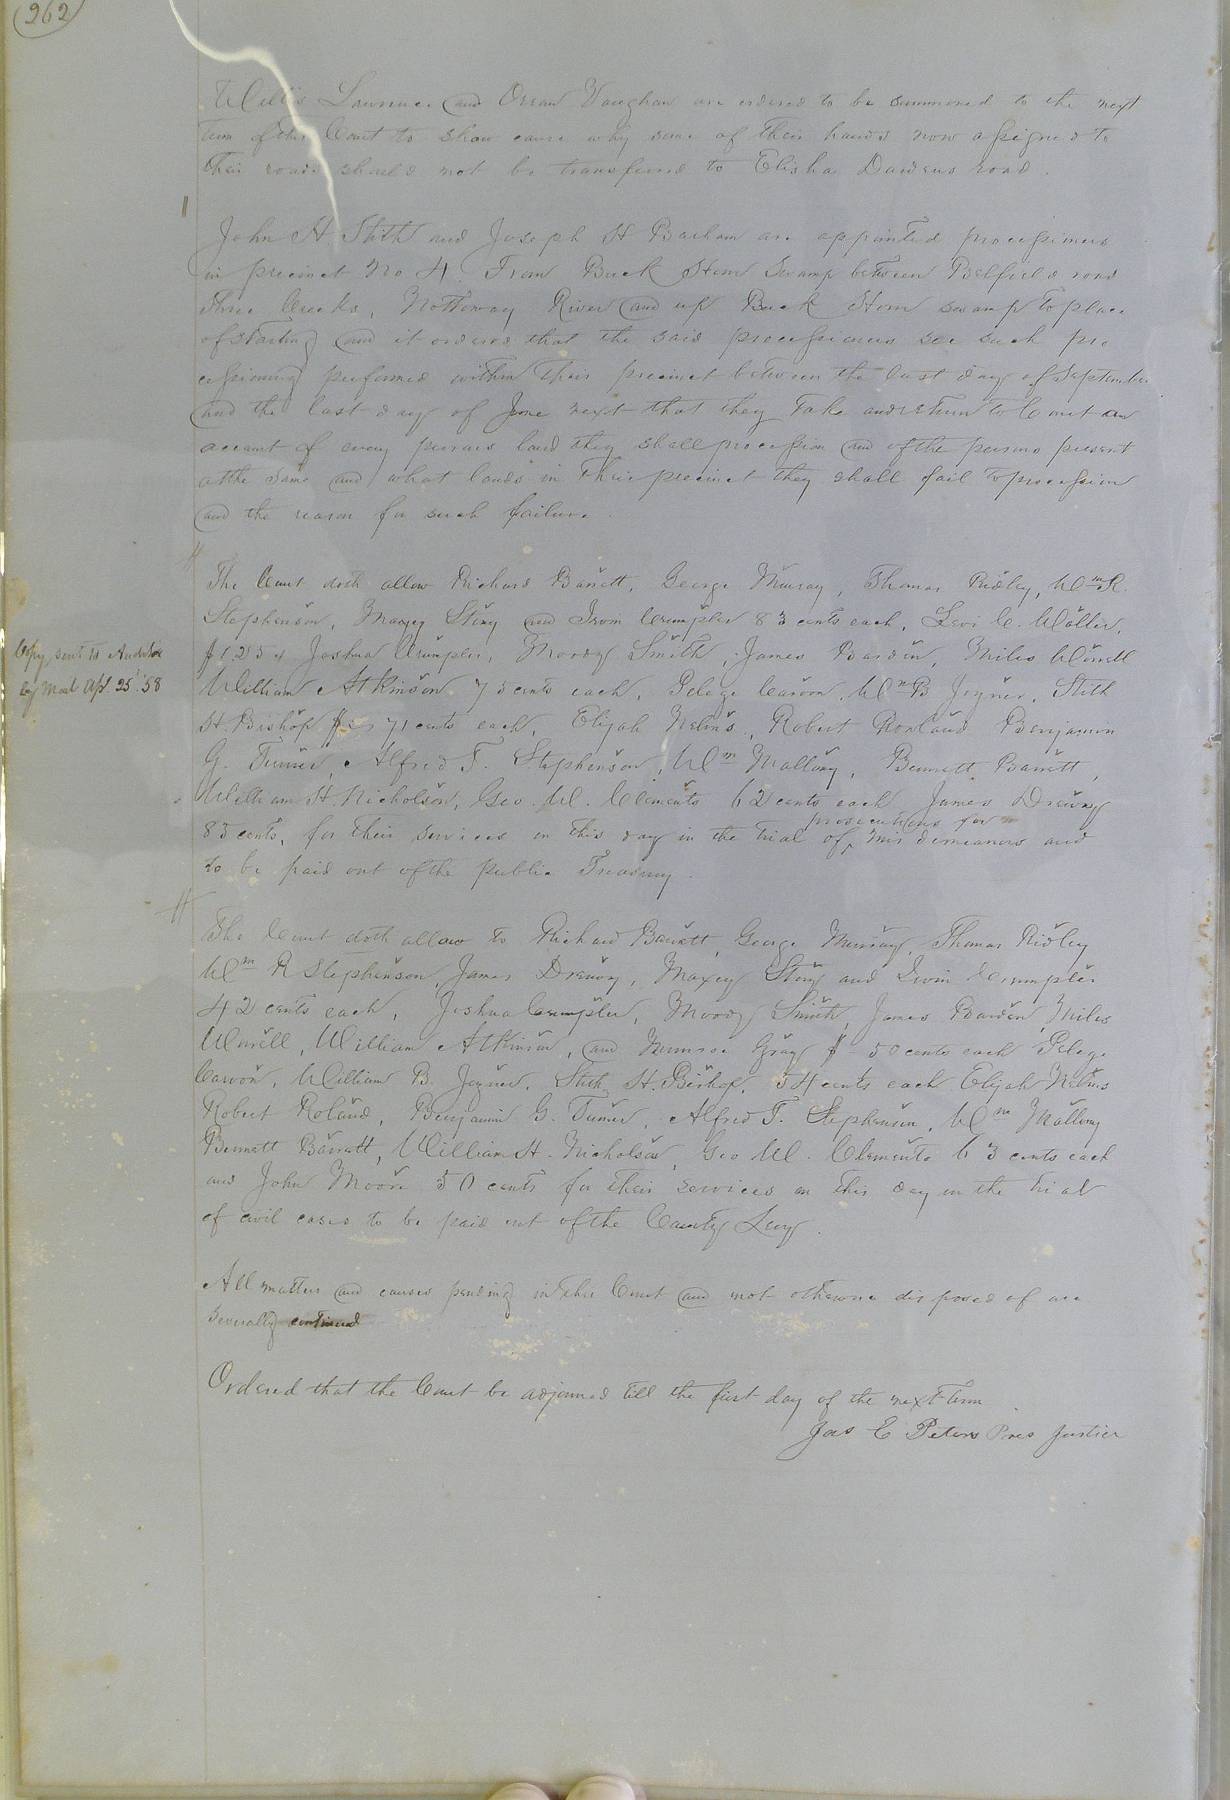 262
Willis Lawrence and Orran Vaughan are ordered to be summoned to the next
term of this Court to show cause why some of their hands now assigned to
their roads should not be transferred to Elisha Dardens road.
John H Stith and Joseph H Barham are appointed processioners
in precinct No 4. From Buck Horn Swamp between Belfield road
Three Creeks, Nottoway River and up Buck Horn swamp to place
of starting and it ordered that the said processioners see such pro
cessioning performed within their precinct between the last day of September
and the last day of June next that they take and return to Court an
account of every persons land they shall procession and of the persons present
at the same and what lands in their precinct they shall fail to procession
and the reason for such failure.
The Court doth allow Richard Barrett, George Murray, Thomas Ridley, Wm R.
Stephenson, Maxey Story and Irvin Crumpler 83 cents each, Levi C. Waller,
Copy sent to Auditor
by Mail Apl. 25th '58
$1.25 Joshua Crumpler, Moody Smith, James Darden, Miles Worrell
William Atkinson 75 cents each, Pelege Carson, Wm B Joyner, Stith
H. Bishop 71 cents each, Elijah Nelms, Robert Rowland Benjamin
G. Turner, Alfred T. Stephenson, Wm Mallory, Bennett Barrett,
William H. Nicholson, Geo. W. Clements 62 cents each James Drewry
prosecutions for
83 cents, for their services on this day in the trial of misdemeanors and
to be paid out of the public Treasury.
The Court doth allow to Richard Barrett, George Murray, Thomas Ridley
Wm R Stephenson, James Drewry, Maxey Story and Irvin Crumpler
42 cents each, Joshua Crumpler, Moody Smith, James Darden, Miles
Worrell, William Atkinson, and Munroe Gray $ 50 cents each Pelege
Carson, William B. Joyner, Stith H. Bishop, 54 cents each Elijah Nelms
Robert Roland, Benjamin G. Turner, Alfred T. Stephenson, Wm Mallory
Bennett Barrett, William H. Nicholson, Geo W. Clements 63 cents each
and John Moore 50 cents for their services on this day in the trial
of civil cases to be paid out of the County Levy.
All matters and causes pending in this Court and not otherwise disposed of are
severally continued
Ordered that the Court be adjourned till the first day of the next term
Jas E Peters Pres Justice